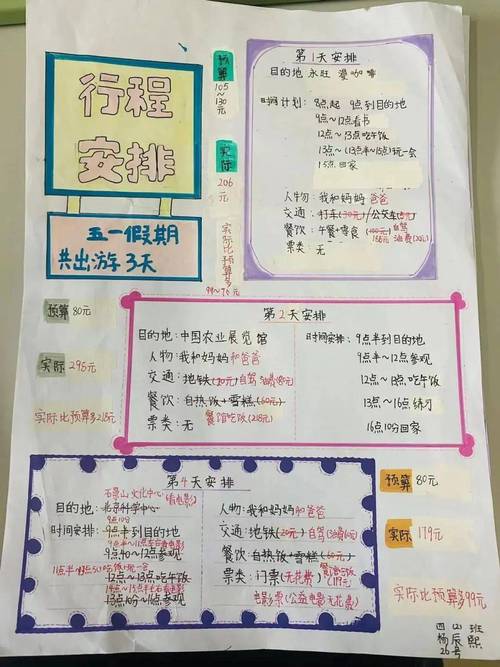 行程
安排
五一假期
共出游3天
预算
105
~
130
元
实际
206
元
实际比预算多
第1天安排
目的地 永旺 漫咖啡
时间计划: 8点起 9点到目的地
9点~12点看书
12点~13点吃午饭
13点~(13点半~15点)玩一会
15点回家
人物: 我和妈妈 爸爸
交通: 打车(30元)/公交车
自驾
餐饮: 午餐+零食(100元)
186元 油费(20元)
票类: 无
预算 80元
实际 295元
实际比预算多215元
第2天安排
目的地: 中国农业展览馆
人物: 我和妈妈和爸爸
交通: 地铁(20元) 自驾 油费
餐饮: 自热饭+雪糕(60元)
餐馆吃饭(218元)
票类: 无
时间安排: 9点半到目的地
9点半~12点参观
12点~13点吃午饭
13点~16点练习
16点10分回家
第4天安排
石景山文化中心(看电影)
目的地: 北京科学中心
9点10分
时间安排: 9点半到目的地
9点40~12点参观
12点~13点吃午饭
13点10分~16点参观
人物: 我和妈妈和爸爸
交通: 地铁(20元) 自驾
餐饮: 自热饭+雪糕(60元)
票类: 门票(无花费)
(119元)
电影票(公益电影无花费)
预算 80元
实际 179元
实际比预算多99元
四 班
杨辰熙
26号